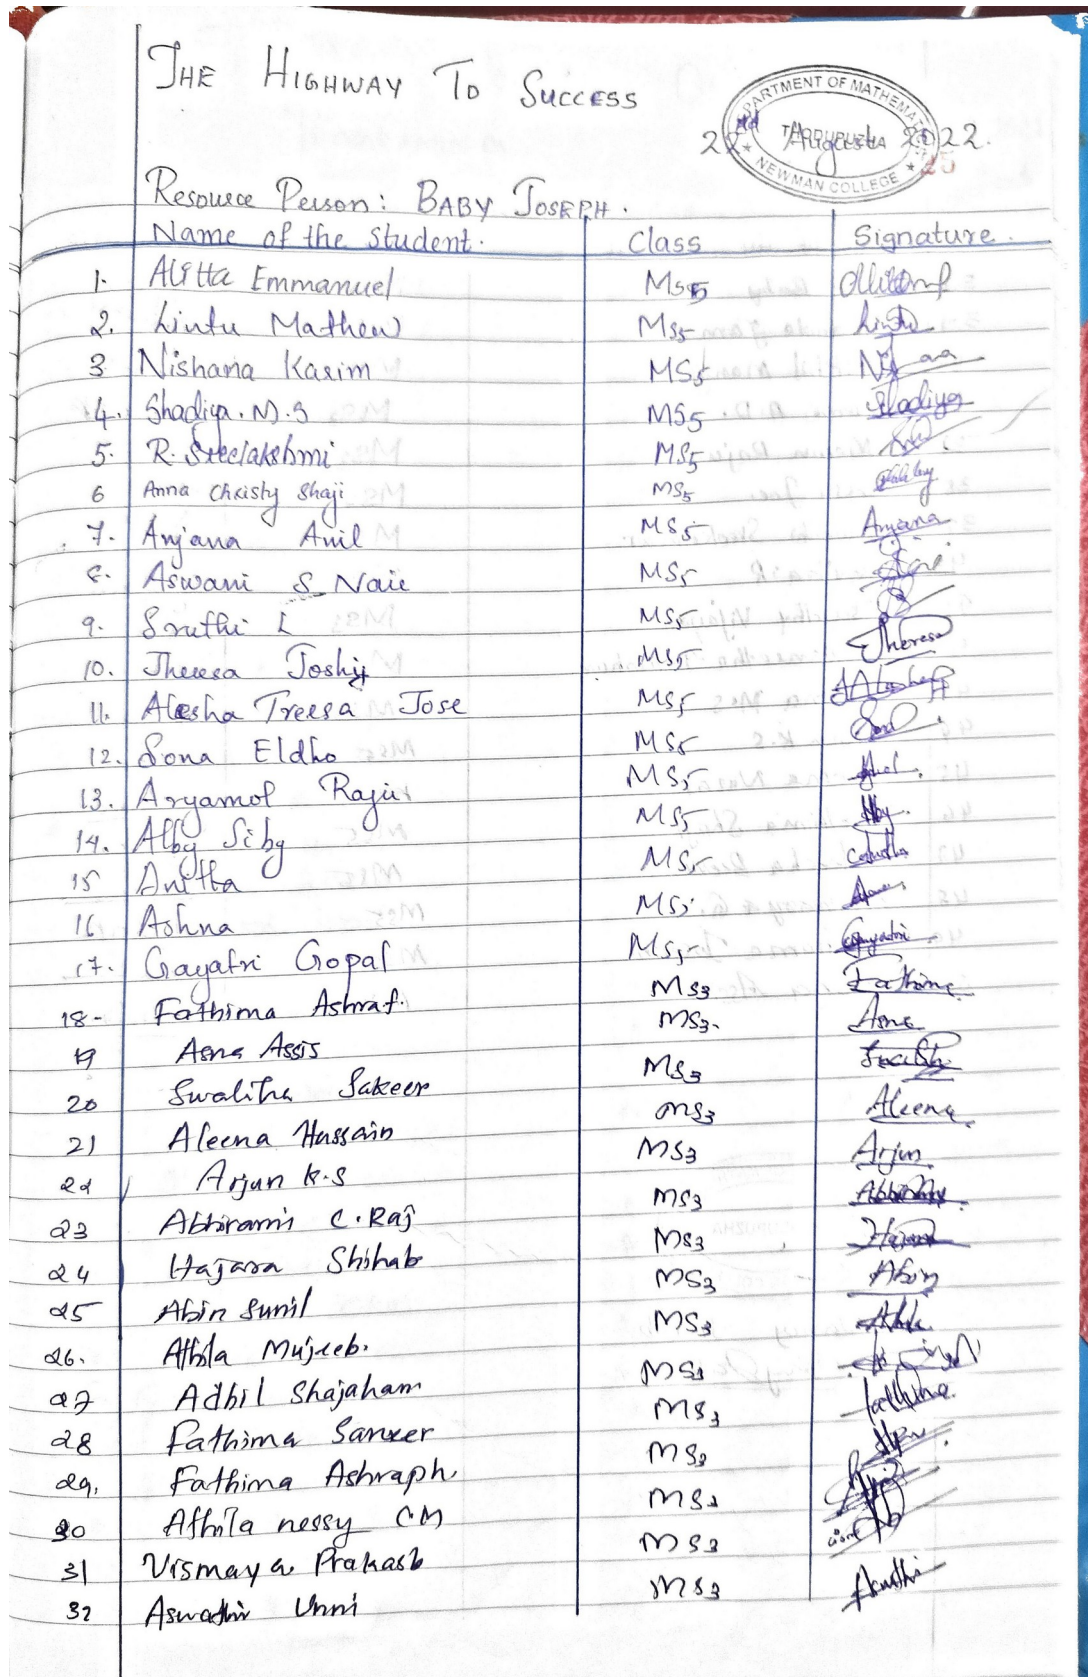 THE HIGHWAY TO SUCCESS
DEPARTMENT OF MATHEMATICS
22nd August 2022.
THODUPUZHA
* NEWMAN COLLEGE *
Resource Person: BABY JOSEPH.
Name of the student. Class Signature.
1. Alitta Emmanuel MS5
2. Lintu Mathew MS5 Lintu
3 Nishana Karim MS5
4. Shadiya. N. S MS5 Shadiya
5. R. Sreelakshmi MS5
6 Anna Christy Shaji MS5
7. Anjana Anil MS5 Anjana
8. Aswani S Nair MS5
9. Sruthi L MS5
10. Theresa Joshy MS5 Theresa
11. Alesha Treesa Jose MS5
12. Sona Eldho MS5
13. Aryamol Raju MS5
14. Alby Siby MS5 Alby.
15 Anitta MS5
16 Ashna MS5
17. Gayatri Gopal MS5 Gayatri
18- Fathima Ashraf. MS3 Fathima
19 Asna Assis MS3. Asna
20 Swaliha Sakeer MS3
21 Aleena Hussain MS3 Aleena
22 Arjun K.S MS3 Arjun
23 Abhirami C. Raj MS3
24 Hajara Shihab MS3
25 Abin Sunil MS3 Abin
26. Athila Mujeeb. MS3
27 Adhil Shajaham MS3
28 Fathima Saneer MS3 Fathima
29. Fathima Ashraph. MS3
30 Athila nessy C M MS3
31 Vismaya Prakash MS3
32 Aswathi Unni MS3